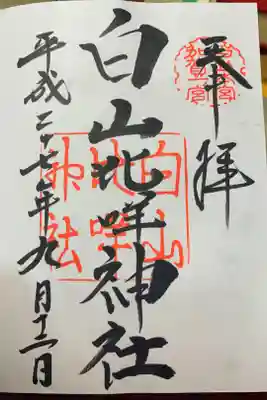 奉拝
加賀一宮
白山比咩神社
白山比咩神社
平成二十七年九月十二日